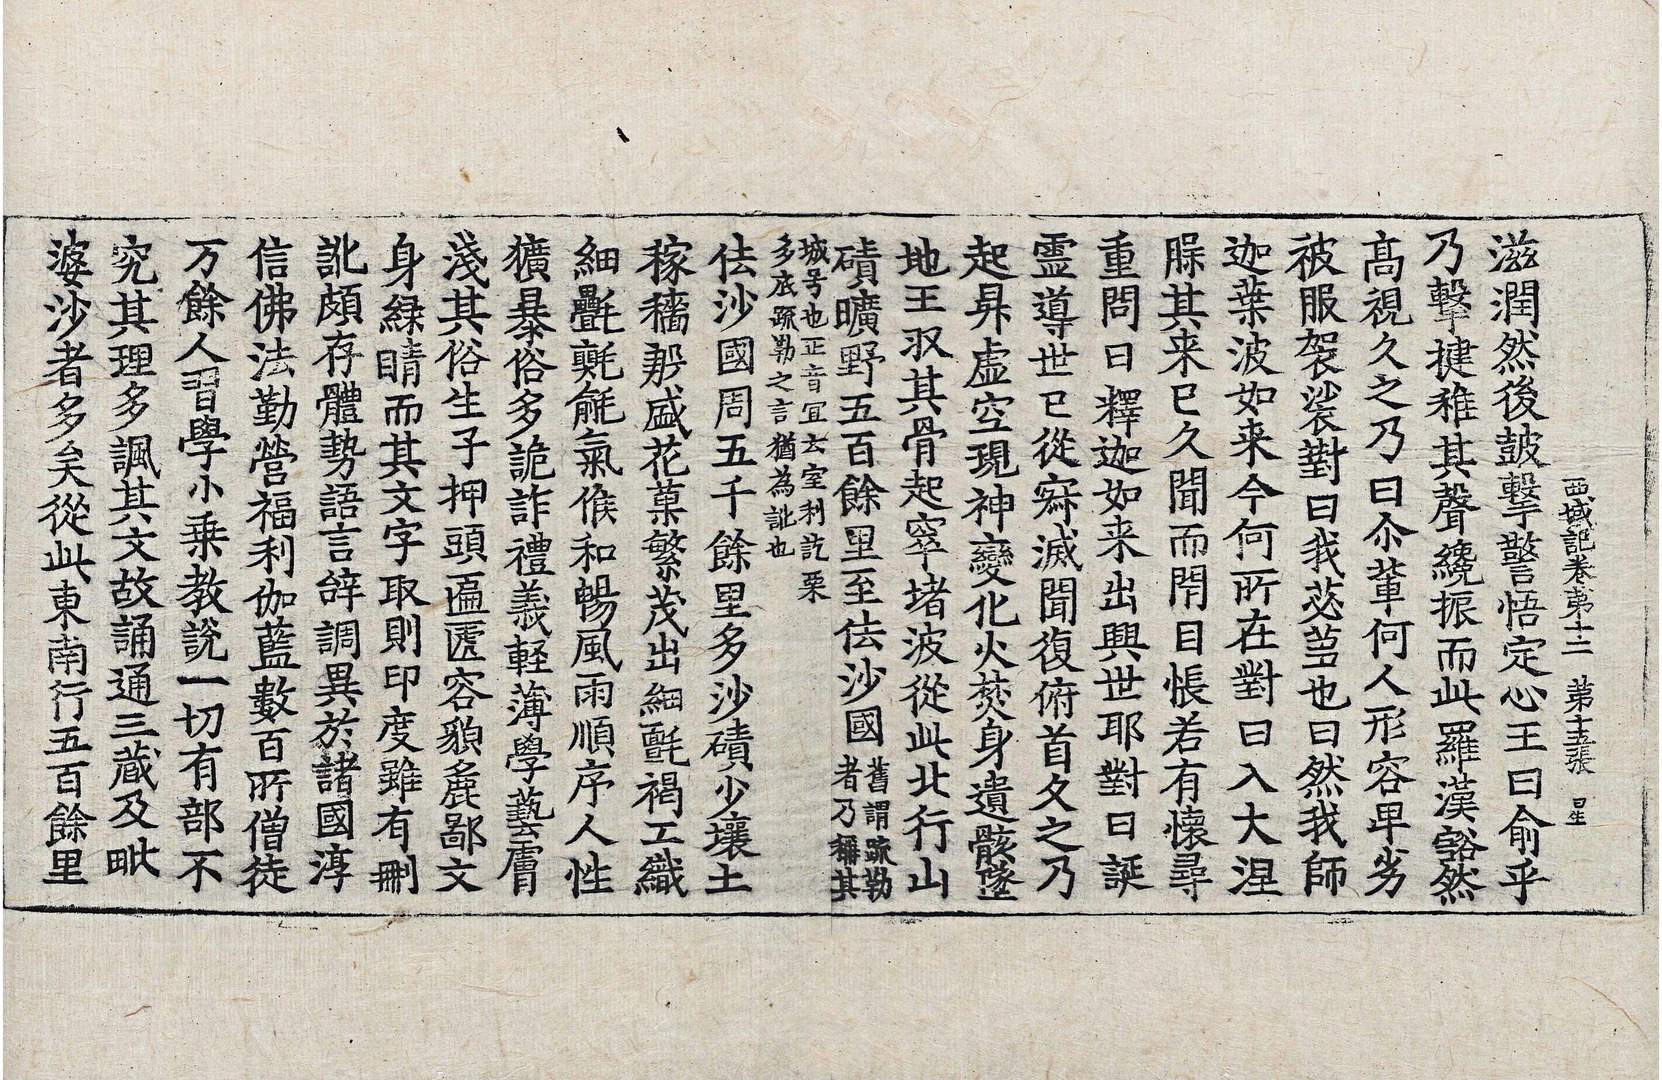 西域記卷苐十二 第十五張 星
滋潤然後皷擊警悟定心王曰俞乎
乃擊揵稚其聲纔振而此羅漢豁然
高視久之乃曰尒輩何人形容卑劣
被服袈裟對曰我苾芻也曰然我師
迦葉波如来今何所在對曰入大涅
脲其来已久聞而閇目悵若有懷尋
重問曰釋迦如来出興世耶對曰誕
靈導世已從寂滅聞復俯首久之乃
起昇虛空現神變化火焚身遺骸墜
地王収其骨起窣堵波從此北行山
磧曠野五百餘里至佉沙國
舊謂疏勒
者乃稱其
城号也正音宜云室利訖栗
多底疏勒之言猶為訛也
佉沙國周五千餘里多沙磧少壤土
稼穡殷盛花菓繁茂出細氈褐工織
細㲲氍毹氣候和暢風雨順序人性
獷暴俗多詭詐禮義輕薄學藝膚
淺其俗生子押頭匾㔸容貌麁鄙文
身綠睛而其文字取則印度雖有刪
訛頗存體勢語言辝調異於諸國淳
信佛法勤營福利伽藍數百所僧徒
万餘人習學小乗教說一切有部不
究其理多諷其文故誦通三蔵及毗
婆沙者多矣從此東南行五百餘里